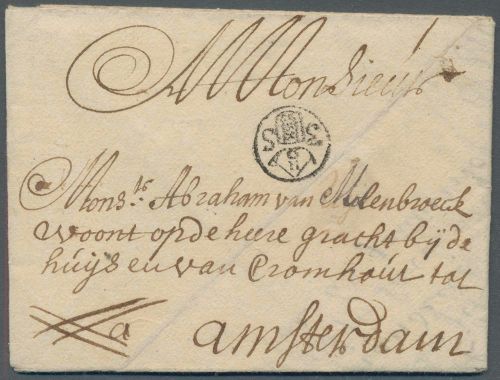 A Monsieur
Mons.rs Abraham van Mijlenbroeck
Woont op de heere gracht bij de
huijsen van Cromhout tot
a amsterdam